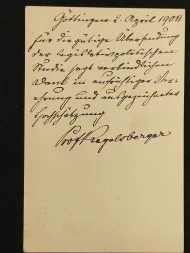 Göttingen 2. April 1904
für die gütige Übersendung
der legislativpolitischen
Studie sagt verbindlichen
Dank in aufrichtiger Ver-
ehrung und ausgezeichneter
Hochschätzung
Prof Regelsberger